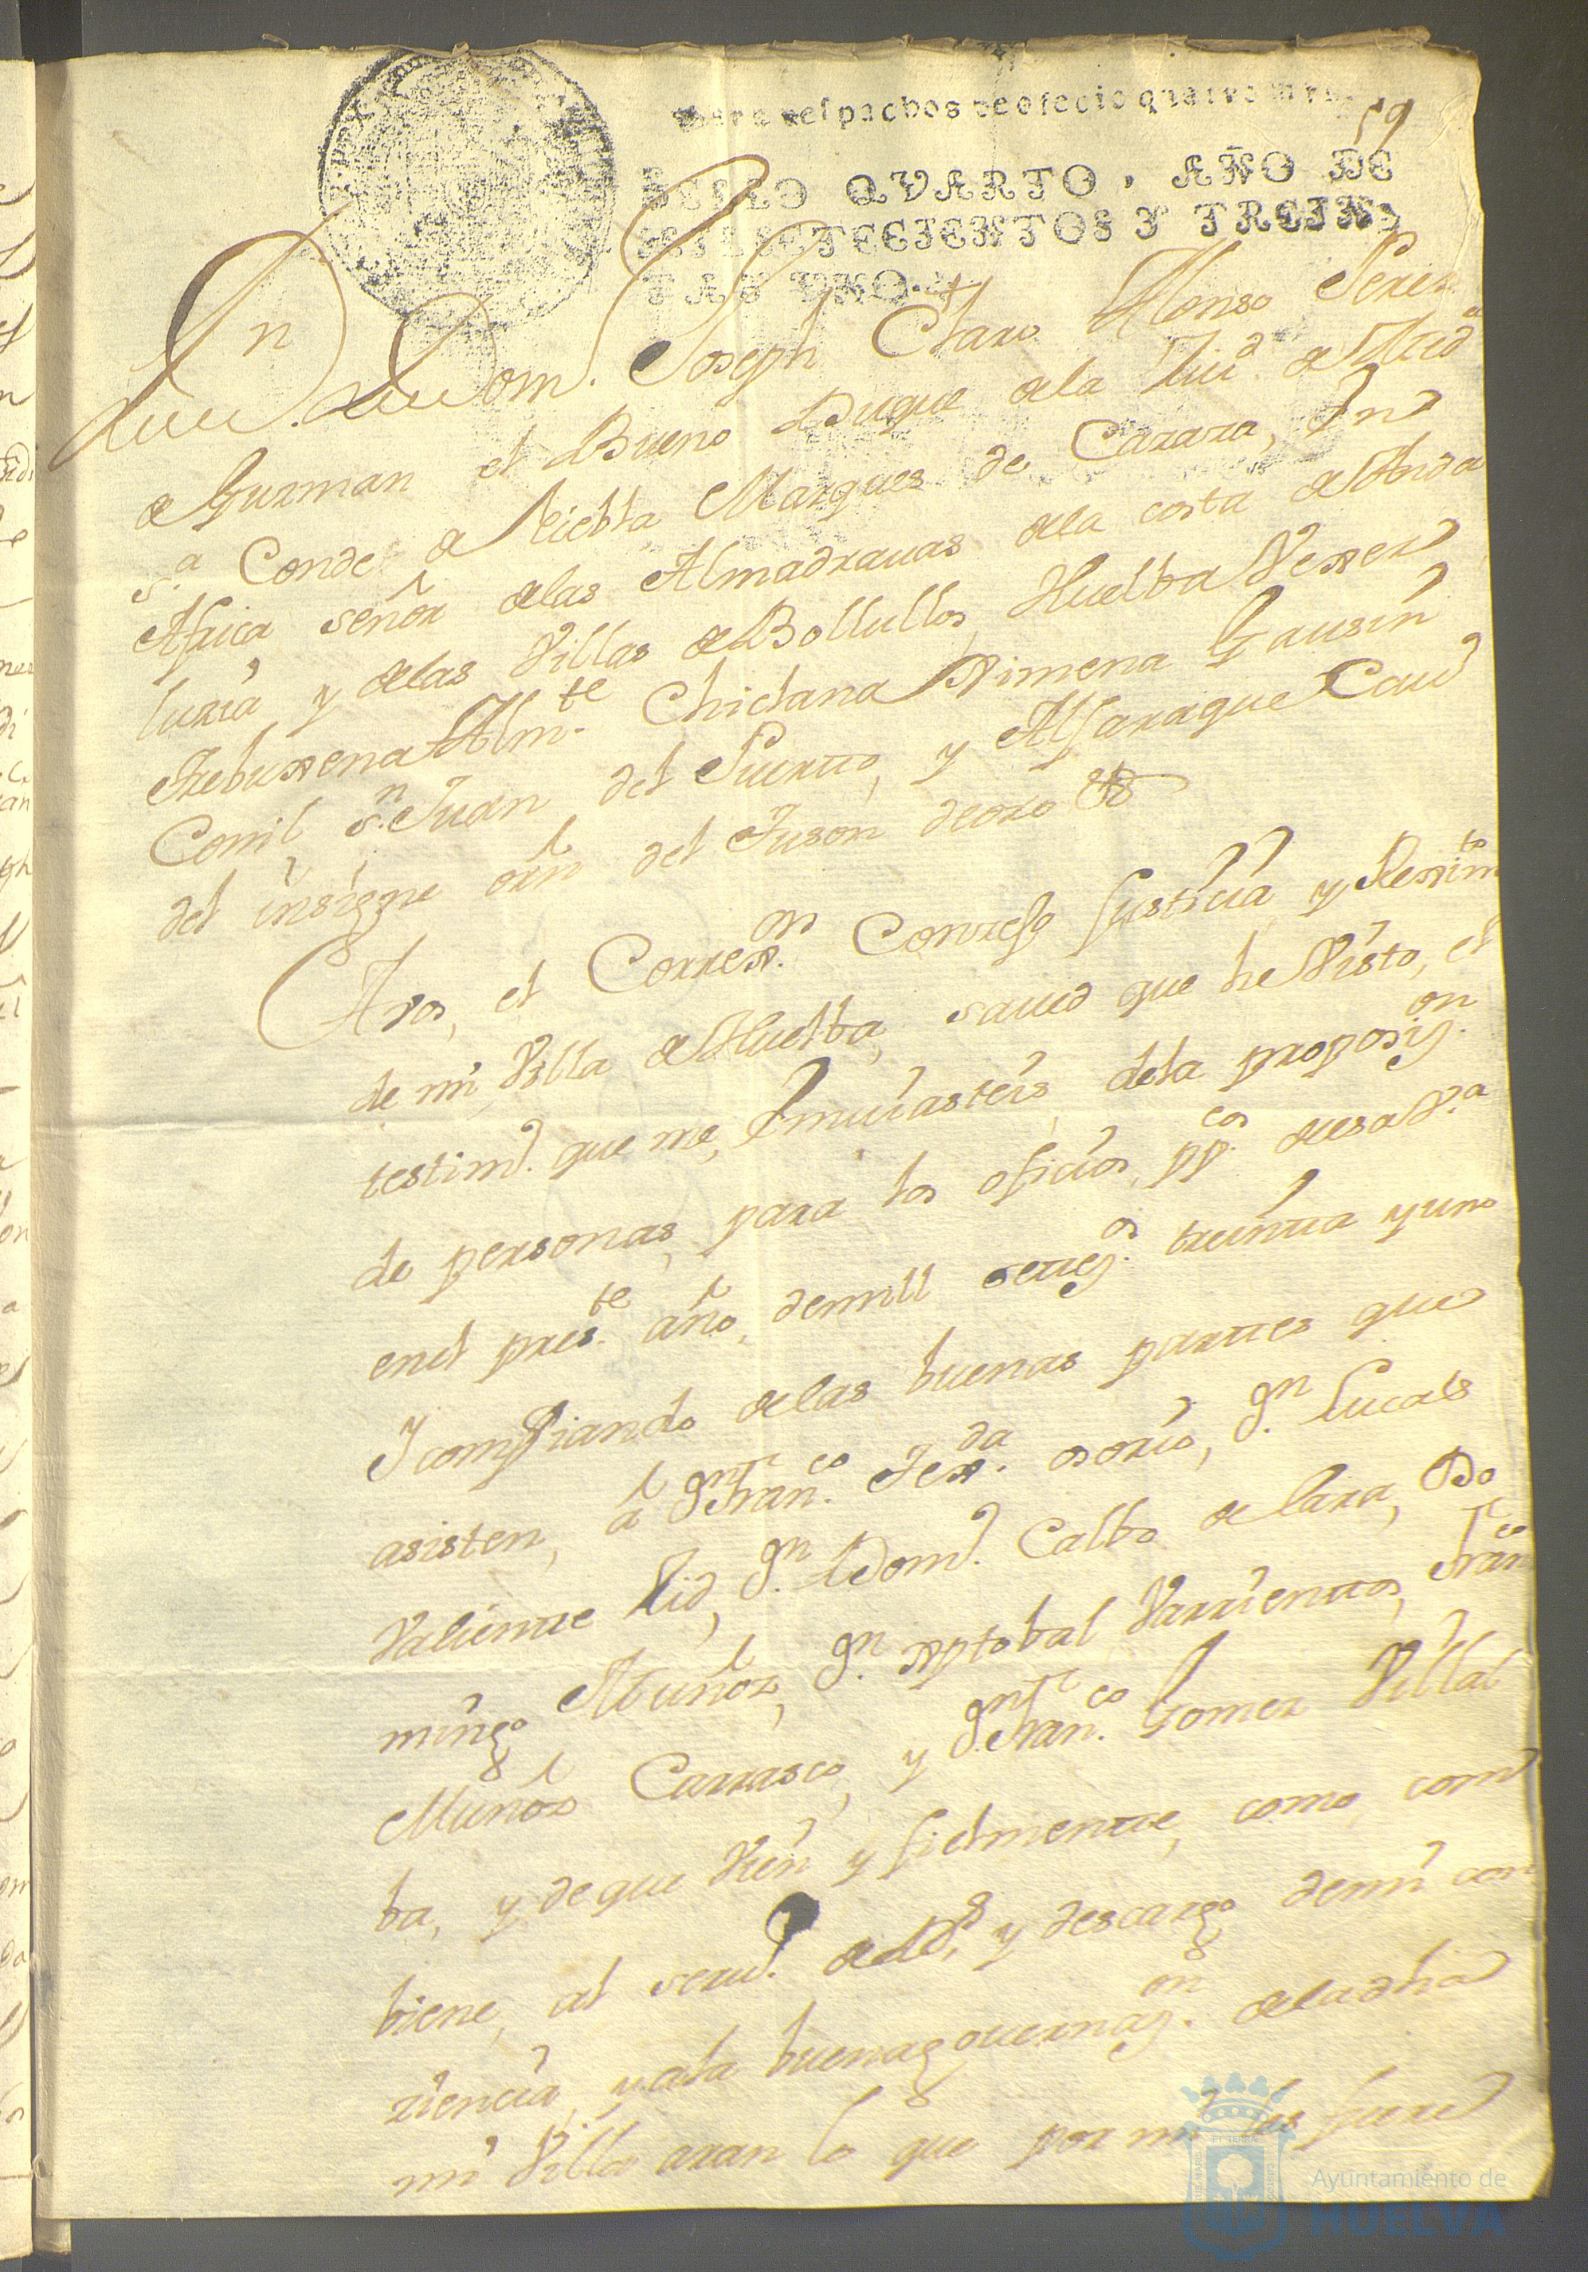 para despachos de oficio quatro mrs
59
SELLO QVARTO, AÑO DE
MIL SETECIENTOS Y TREIN
TA Y VNO.
Dn Dom. Joseph Claro Alonso Perez
de Guzman el Bueno Duque dela Ziud. de Medª
sª. Conde de Niebla Marques de Cazaza, En
Africa señor delas Almadrauas dela costa de Anda
luzia y delas Villas de Bollullos Huelba Vexer
Trebuxena Almte. Chiclana Ximena Gausin
Conil Sn. Juan del Puerto, y Alfaraque Cauo
del insigne orñ del Tuson de oro &
A vos, el Correxor. Conzejo Justizia y Reximto
de mi Villa de Huelba, saued que he Visto, el
testimo. que me, Imuiasteis, dela proposizon.
de personas, para los ofizios, ppcos. de esa Vª
en el preste. año, de mill seteços. treinta y uno
Y comfiando de las buenas partes que
asisten, à Dn Franco. Texda. osorio, Dn. Lucas
Valiente Zid, Dn. Domo. Calbo de Lara, Do
mingo Muñoz, Dn. Xptobal Varrientos, Franco
Muñoz Carrasco, y Dn Franco. Gomez Villal
ba, y de que Vien y fielmente, como com
biene, al seruo. de Ds, y descargo, de mi con
ziencia, y ala buena gouernazon. de la dha
mi Villa aran lo que por mi les fuere
Ayuntamiento de
HUELVA